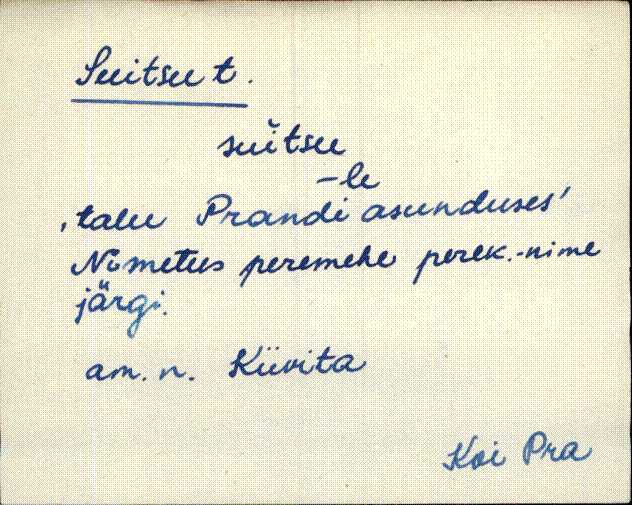 Suitsu t.
suĭtsu
-le
‚talu Prandi asunduses'
Nimetus peremehe perek.-nime
järgi.
am. n. Kiivita
Koi Pra